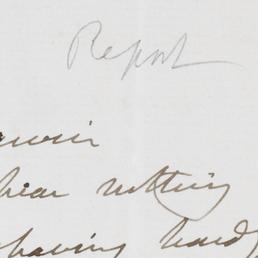 Report
hear nothing
having hard